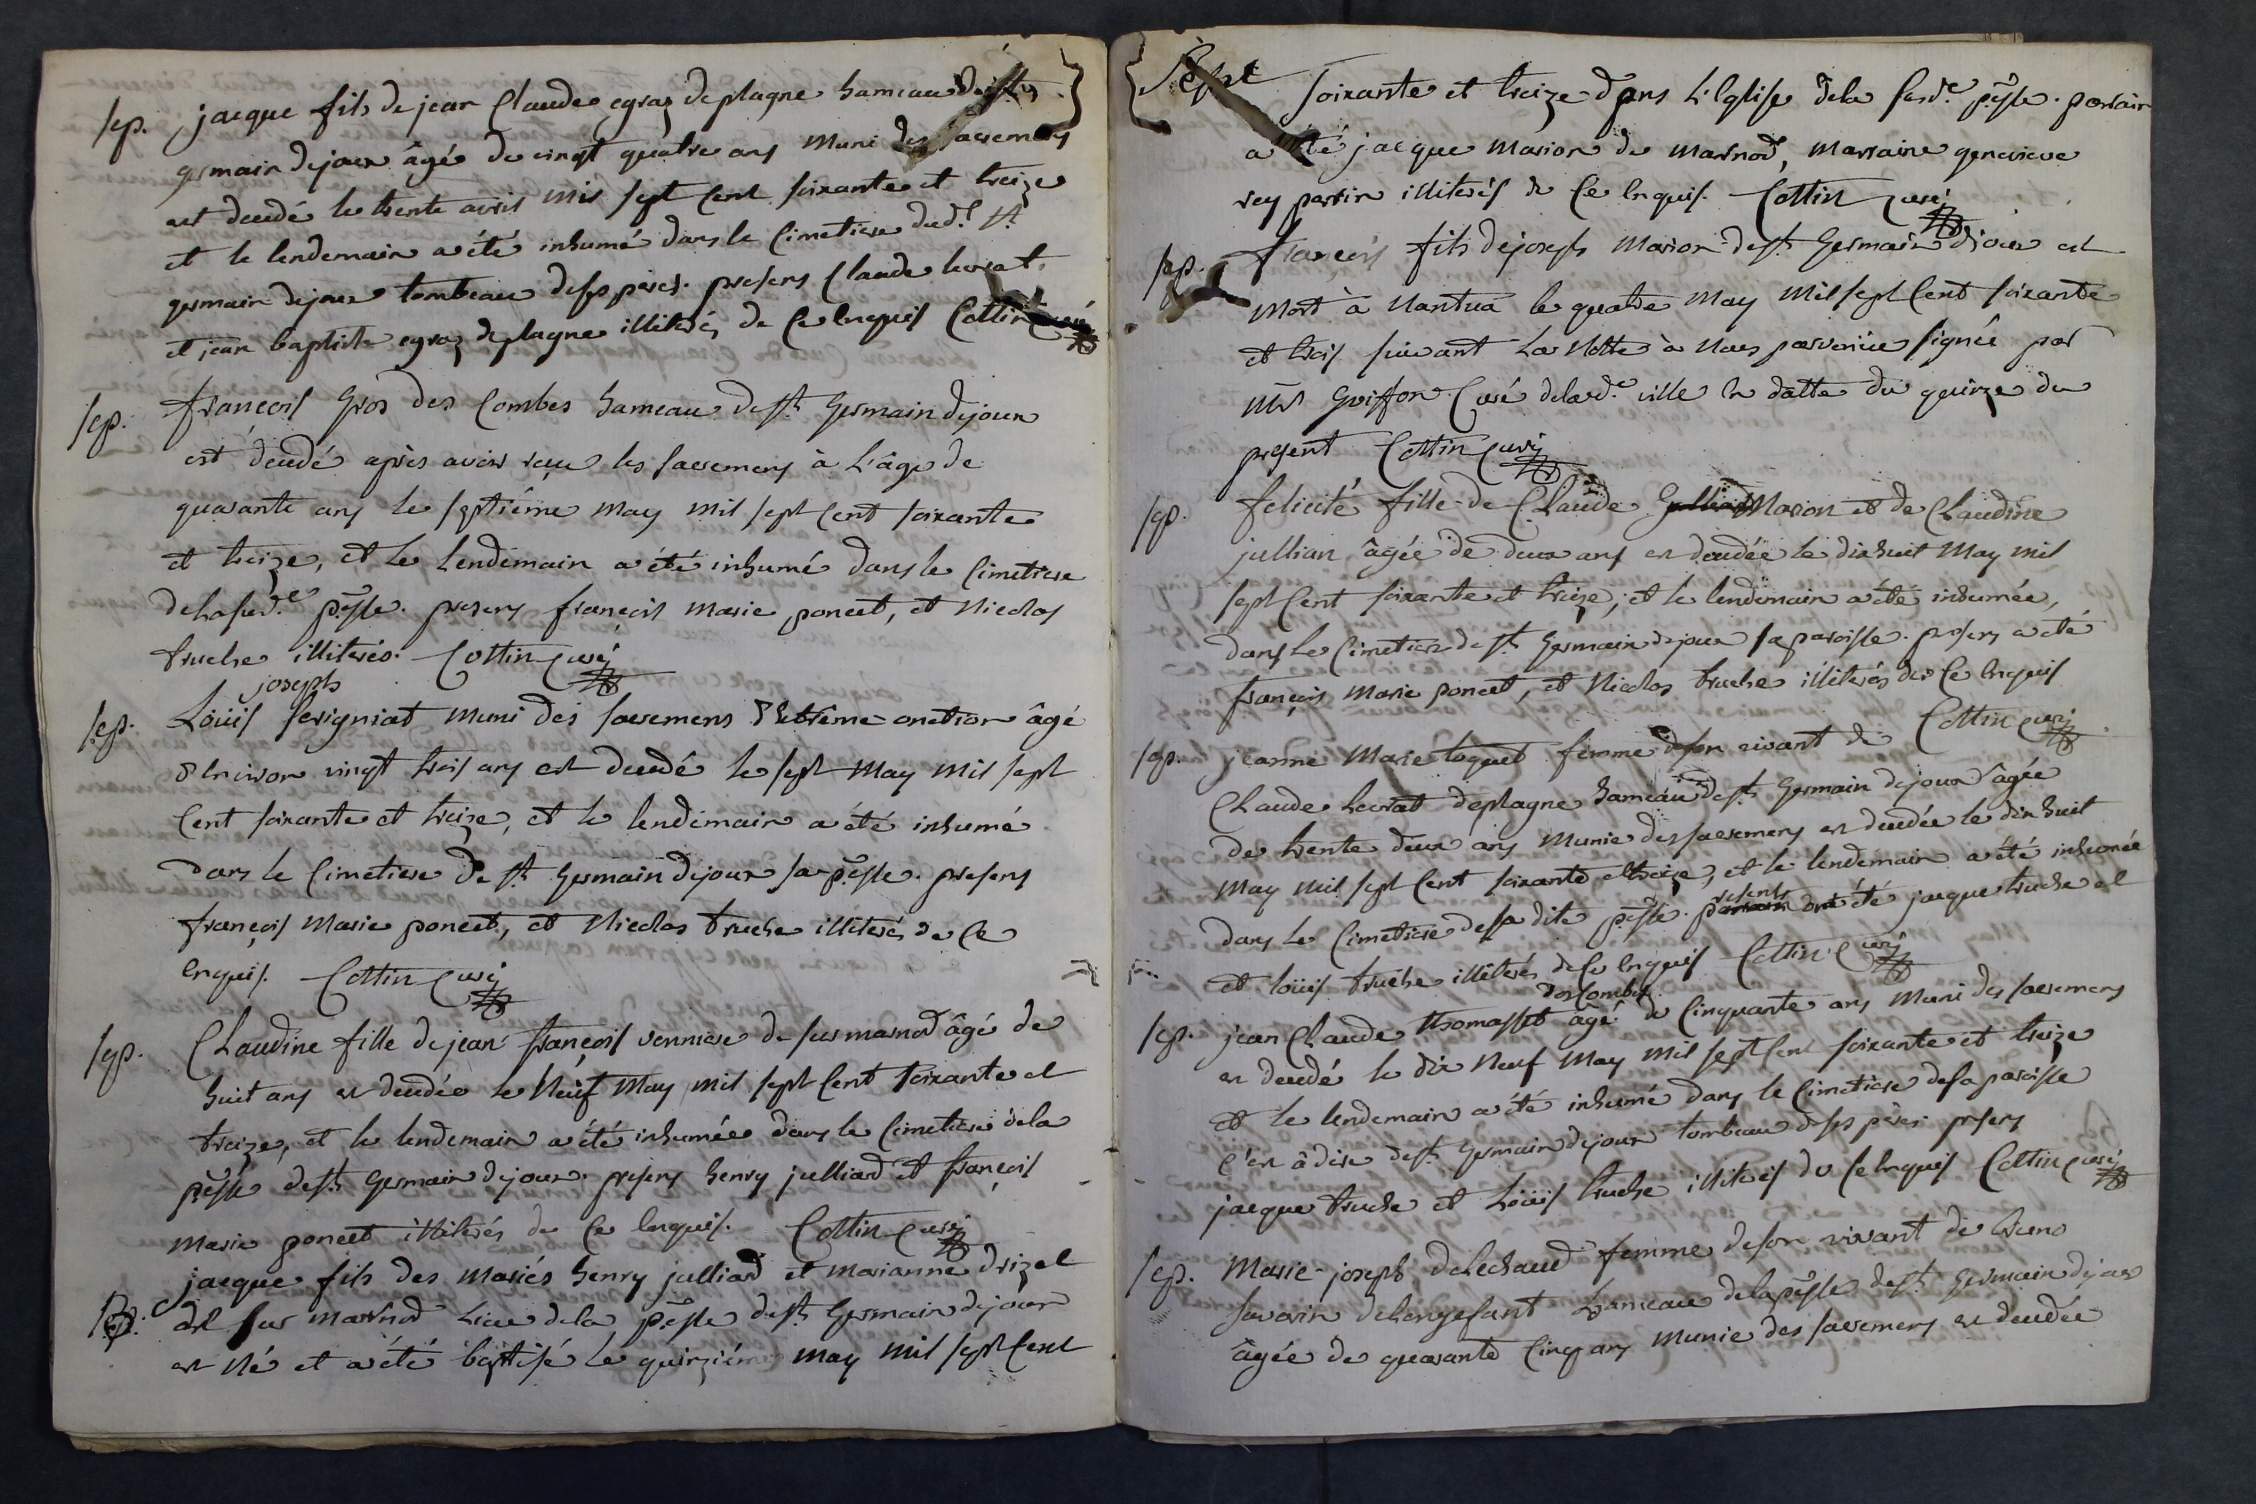 sep. jacque fils de jean Claude egraz deplagne hameau de st
germain dejoux âgé de vingt quatre ans muni des sacremens
est decedé le trente avril mil sept cent soixante et treize
et le lendemain a été inhumé dans le Cimetiere dud.t st
germain dejoux tombeau de ses peres. presens Claude levrat
et jean baptiste egraz deplagne illiterés de ce enquis Cottin curé
sep. françois Gros des Combes hameau de st Germain dejoux
est decedé après avoir reçu les sacremens à L'âge de
quarante ans le septiême may mil sept cent soixante
et treize, et le lendemain a été inhumé dans le Cimetiere
de la susd.e p̃sse. presens françois marie poncet, et Nicolas
truche illiterés. Cottin curé
joseph
sep. Loüis sevigniat muni des sacremens d'Extrême onction âgé
d'Environ vingt trois ans est decedé le sept may mil sept
Cent soixante et treize, et le lendemain a été inhumé
dans le Cimetiere de st Germain dejoux sa p̃sse. presens
françois Marie poncet, et Nicolas truche illiterés de ce
enquis. Cottin curé
sep. Claudine fille de jean françois venniere de sur marnod âgé de
huit ans est decedée le Neuf May mil sept Cent soixante et
treize, et le lendemain a été inhumée dans le Cimetiere dela
p̃sse de st Germain dejoux. presens henry julliard et françois
Marie poncet illiterés de ce enquis. Cottin curé
jacque fils des mariés henry julliard et marianne drizet
Bap. de sur marnod Lieu dela p̃sse de st Germain dejoux
est Né et a été baptisé le quinziéme may mil sept Cent
Sept soixante et treize dans L'Eglise dela susd.e p̃sse. parrain
a été jacque marion de marnod, marraine genevieve
rey perrin illiterés de ce Enquis. Cottin curé
sep. françois fils de joseph marion de st Germain dejoux est
mort à Nantua le quatre may mil sept Cent soixante
et trois suivant La Notte à Nous parvenüe signée par
Mr Guiffon Curé delad.e ville en datte du quinze du
present Cottin curé
sep. felicité fille de Claude Marion et de Claudine
jullian âgée de deux ans est decedée le dixhuit May mil
sept Cent soixante et treize, et le lendemain a été inhumée,
dans le Cimetiere de st Germain dejoux sa paroisse. presens a été
françois Marie poncet, et Nicolas truche illiterés de ce Enquis
Cottin curé
sep. jeanne Marie toquet femme de son vivant de
Claude Levrat deplagne hameau de st Germain dejoux âgée
de trente deux ans munie des sacremens est decedée le dix huit
May mil sept Cent soixante et treize, et le lendemain a été inhumée
dans le Cimetiere de sa dite p̃sse. presents ont été jacque truche et
et loüis truche illiterés de ce enquis Cottin curé
des Combes
sep. jean Claude thomasset agé de Cinquante ans muni des sacremens
est decedé le dix Neuf May mil sept Cent soixante et treize
et le lendemain a été inhumé dans le Cimetiere de sa paroisse
C'est â dire de st Germain dejoux tombeau de ses peres. presens
jacque truche et Loüis truche illiterés de ce enquis Cottin curé
sep. Marie-joseph delechaud femme de son vivant de
savarin delongefant hameau dela p̃sse de st Germain dejoux
âgée de quarante Cinq ans munie des sacremens est decedée